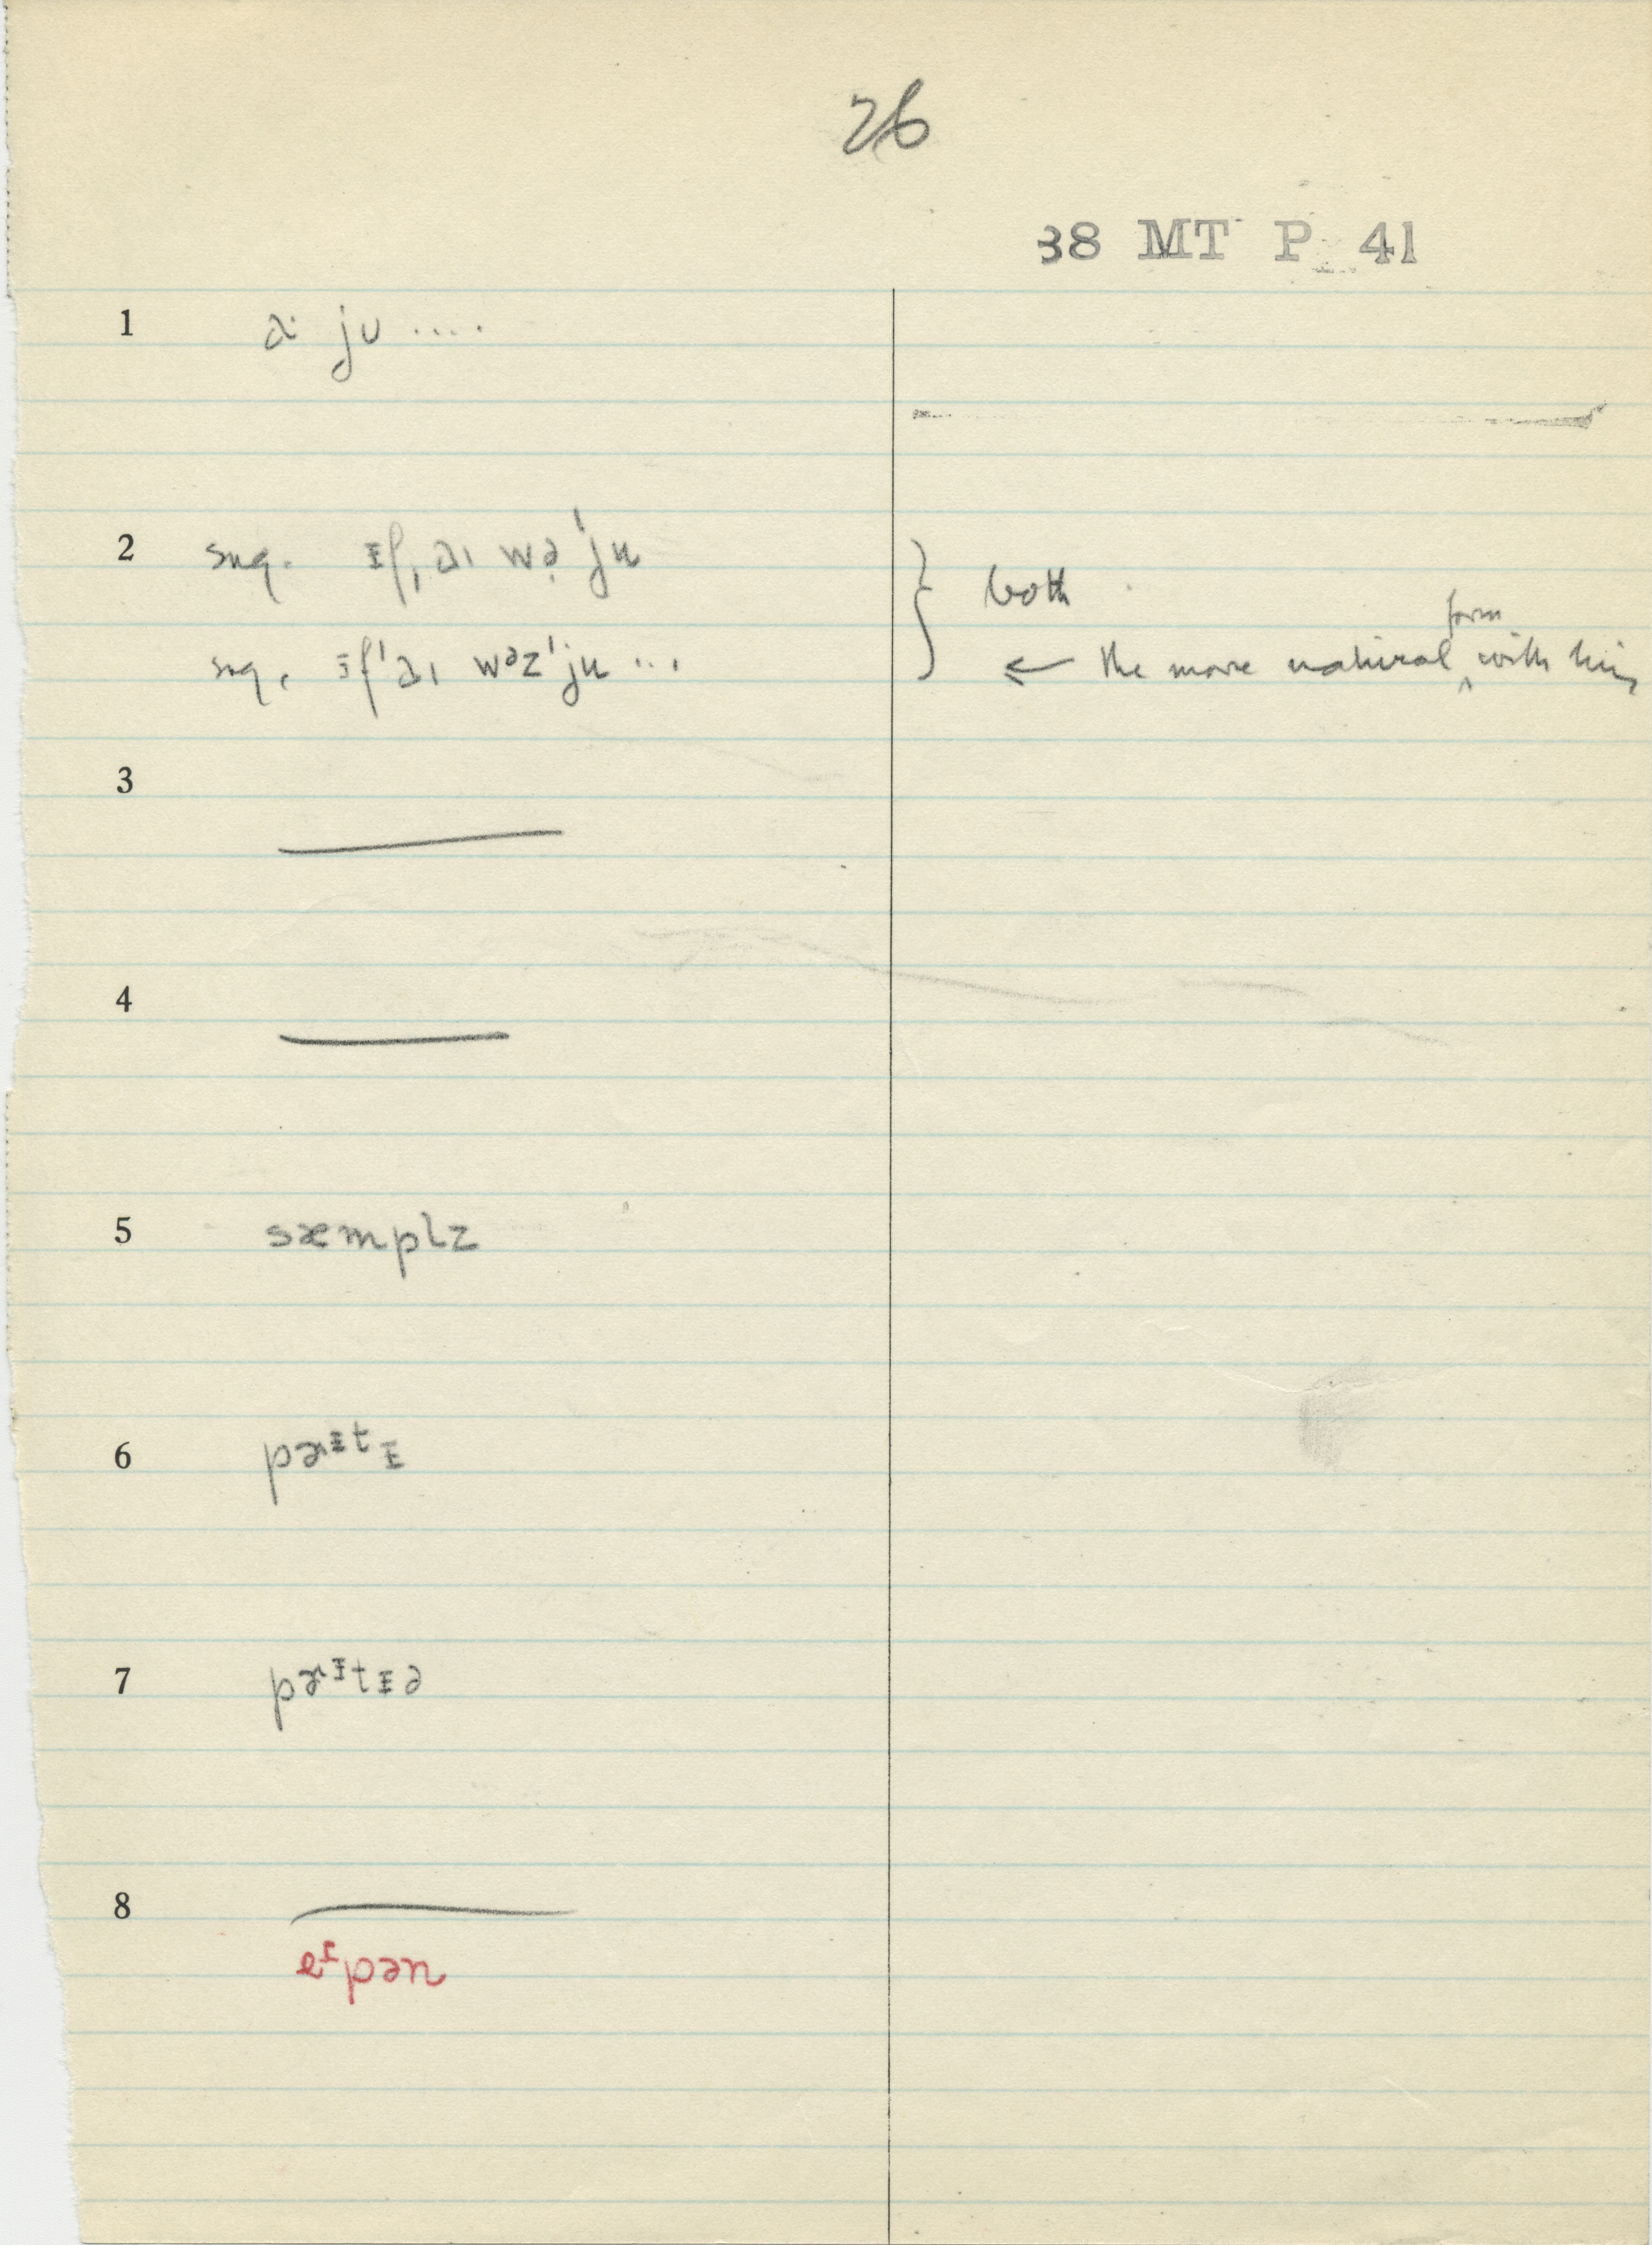 26
38 MT P 41
1 a· ju ....
2 sug. ᵻf, aɪ wə 'ju
both
form
sug. ᵻf 'aɪ wəz 'ju ...
← the more natural ‸ with him
3
4
5 sæmplz
6 pɚᵻtᵻ
7 pɚᵻtᵻə
8
eᶦpən